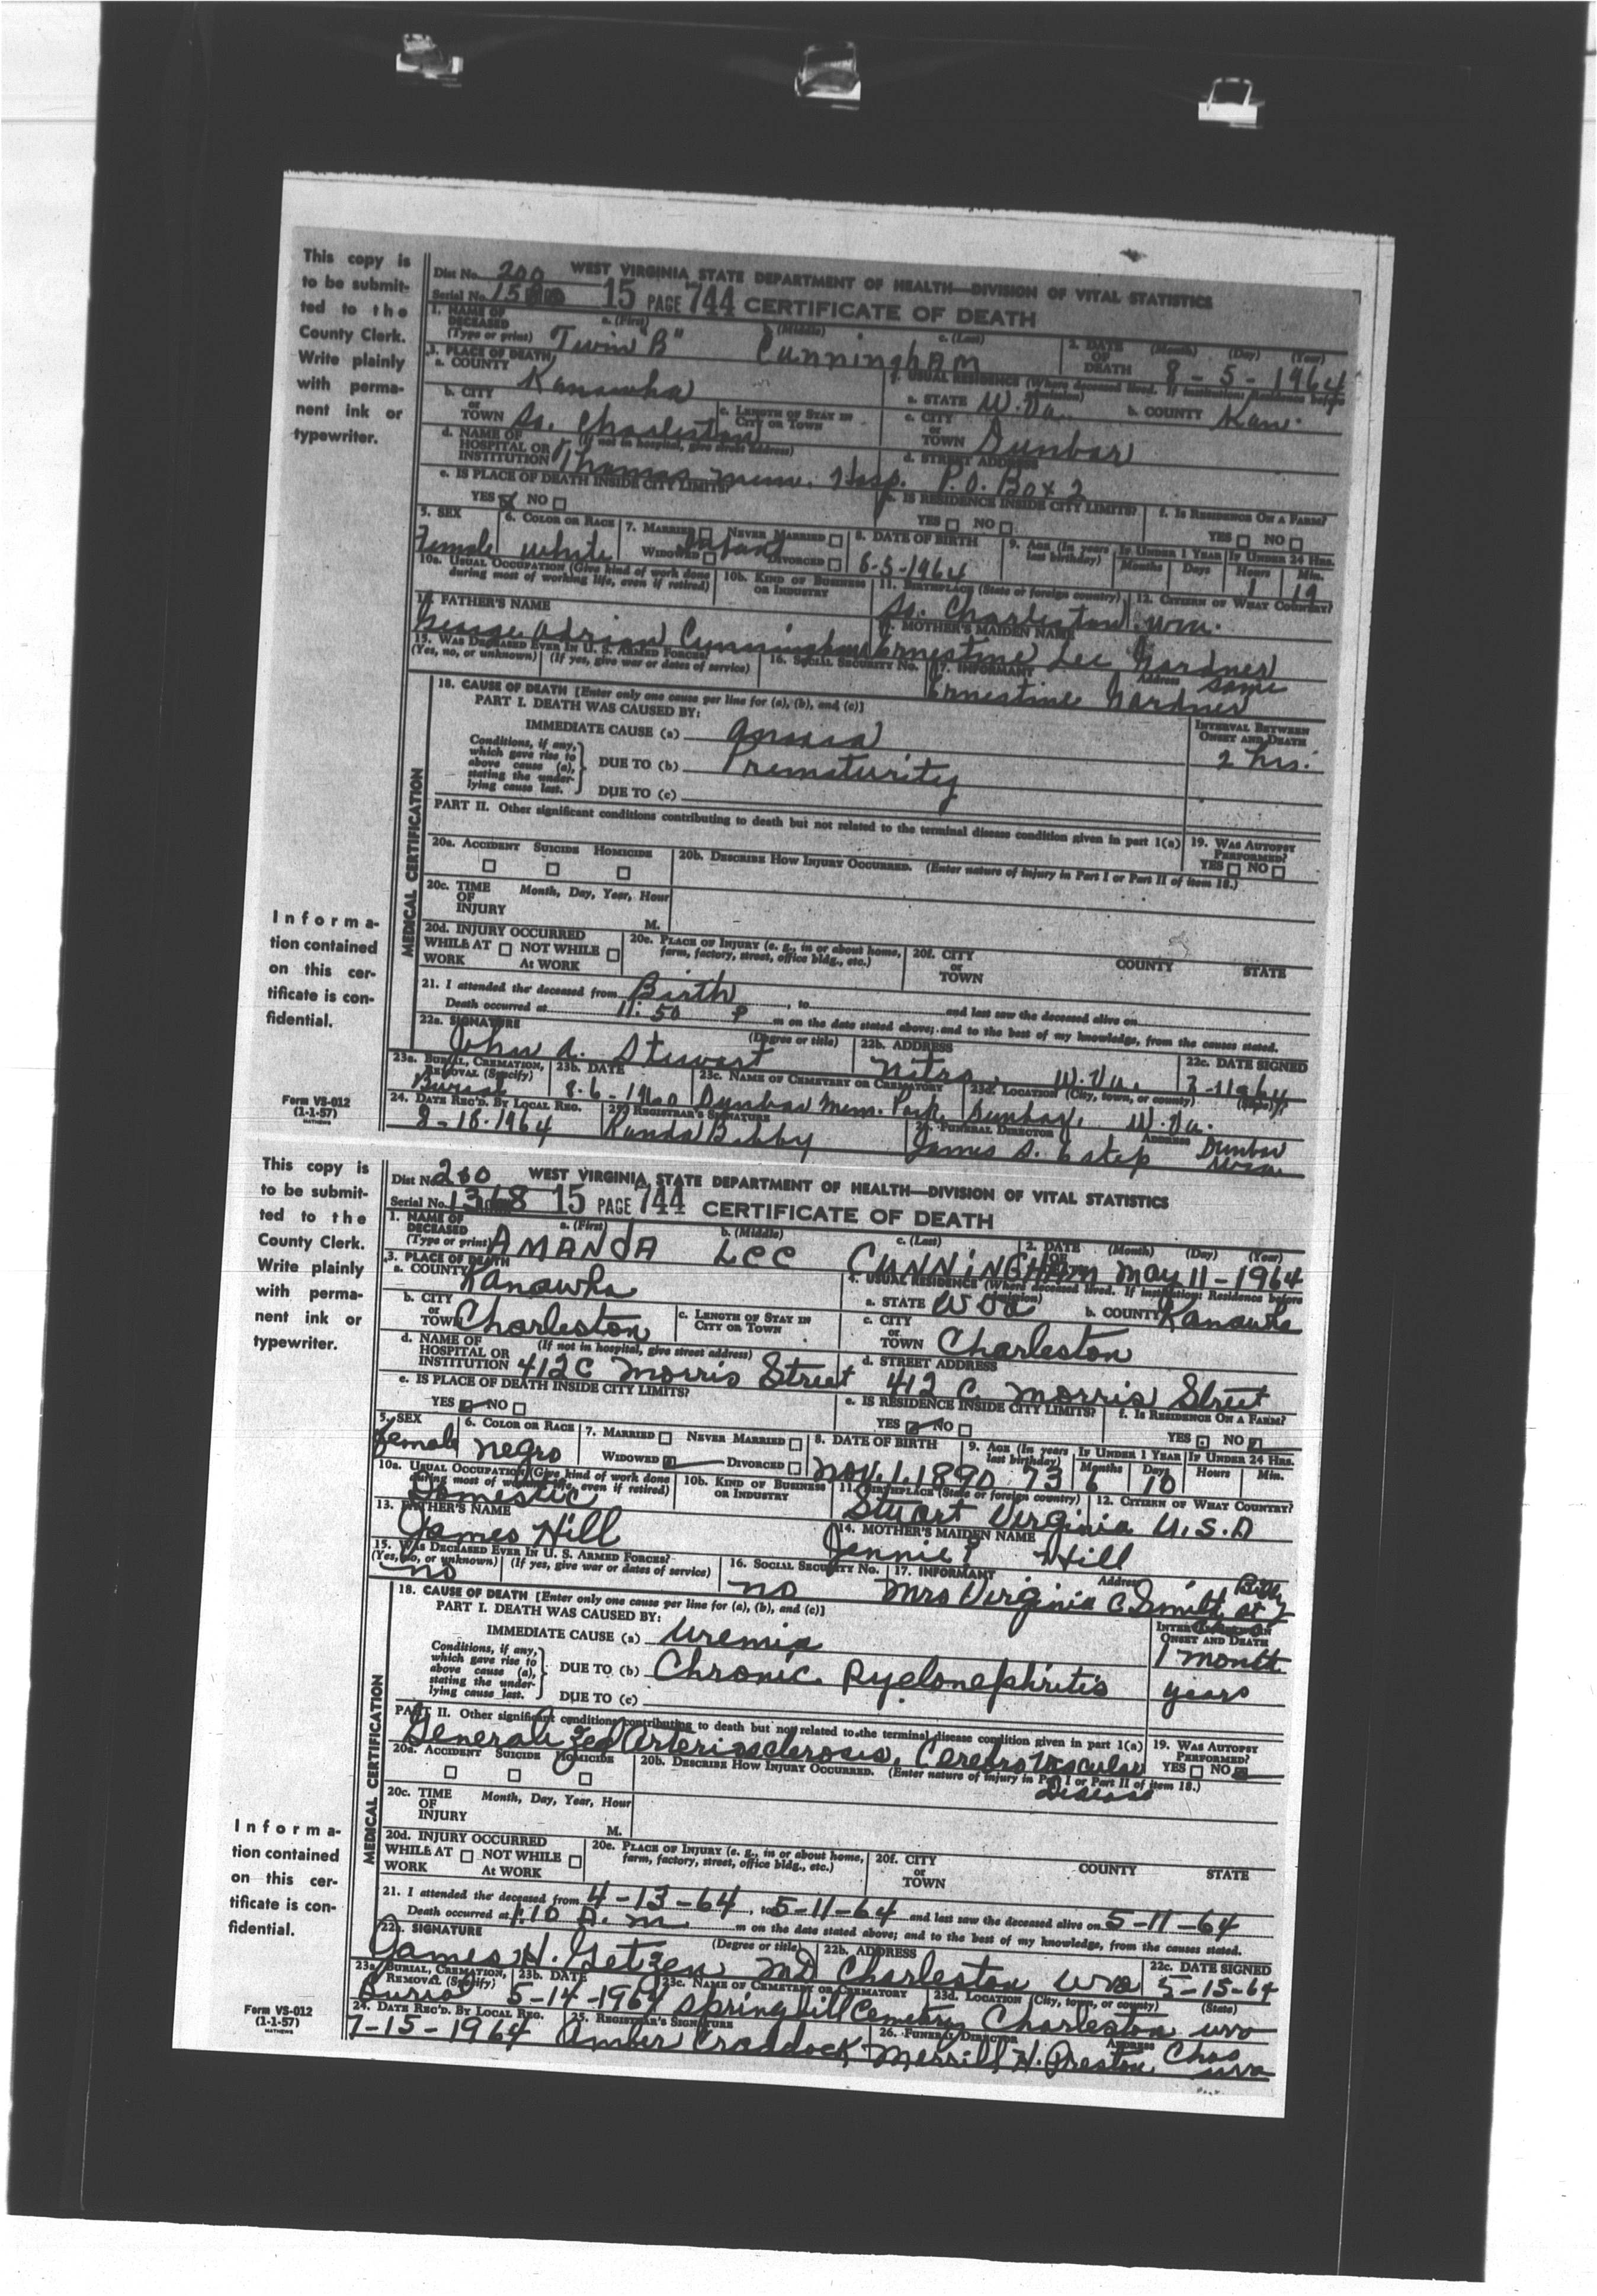 This copy is
to be submit-
ted to the
County Clerk.
Write plainly
with perma-
nent ink or
typewriter.
Informa-
tion contained
on this cer-
tificate is con-
fidential.
Form VS-012
(1-1-57)
MATHEWS
Dist No. 200 WEST VIRGINIA STATE DEPARTMENT OF HEALTH—DIVISION OF VITAL STATISTICS
Serial No. 15 PAGE 744 CERTIFICATE OF DEATH
1. NAME OF DECEASED (Type or print) a. (First) (Middle) c. (Last) 2. DATE OF DEATH (Month) (Day) (Year)
Twin "B" CunninghAM 8-5-1964
3. PLACE OF DEATH 4. USUAL RESIDENCE (Where deceased lived. If institution: Residence before admission)
a. COUNTY Kanawha a. STATE W.Va. b. COUNTY Kan.
b. CITY or TOWN So. Charleston c. LENGTH OF STAY IN CITY OR TOWN c. CITY or TOWN Dunbar
d. NAME OF HOSPITAL OR INSTITUTION (If not in hospital, give street address) Thomas Mem. Hosp. d. STREET ADDRESS P.O. Box 2
e. IS PLACE OF DEATH INSIDE CITY LIMITS? e. IS RESIDENCE INSIDE CITY LIMITS? f. IS RESIDENCE ON A FARM?
YES NO YES NO YES NO
5. SEX 6. COLOR OR RACE 7. MARRIED NEVER MARRIED 8. DATE OF BIRTH 9. AGE (In years last birthday) IF UNDER 1 YEAR IF UNDER 24 HRS.
Female white WIDOWED Infant DIVORCED 8-5-1964 Months Days Hours 1 Min. 19
10a. USUAL OCCUPATION (Give kind of work done during most of working life, even if retired) 10b. KIND OF BUSINESS OR INDUSTRY 11. BIRTHPLACE (State or foreign country) 12. CITIZEN OF WHAT COUNTRY?
So. Charleston
13. FATHER'S NAME 14. MOTHER'S MAIDEN NAME
George Adrian Cunningham Ernestine Lee Gardner
15. WAS DECEASED EVER IN U. S. ARMED FORCES? (Yes, no, or unknown) (If yes, give war or dates of service) 16. SOCIAL SECURITY No. 17. INFORMANT Address
Ernestine Gardner same
18. CAUSE OF DEATH [Enter only one cause per line for (a), (b), and (c)]
PART I. DEATH WAS CAUSED BY: INTERVAL BETWEEN ONSET AND DEATH
IMMEDIATE CAUSE (a) 2 hrs.
Conditions, if any, which gave rise to above cause (a), stating the under-lying cause last.
DUE TO (b) Prematurity
DUE TO (c)
PART II. Other significant conditions contributing to death but not related to the terminal disease condition given in part 1(a) 19. WAS AUTOPSY PERFORMED? YES NO
20a. ACCIDENT SUICIDE HOMICIDE 20b. DESCRIBE HOW INJURY OCCURRED. (Enter nature of injury in Part I or Part II of item 18.)
20c. TIME OF INJURY Month, Day, Year, Hour M.
20d. INJURY OCCURRED WHILE AT WORK NOT WHILE AT WORK 20e. PLACE OF INJURY (e. g., in or about home, farm, factory, street, office bldg., etc.) 20f. CITY or TOWN COUNTY STATE
MEDICAL CERTIFICATION
21. I attended the deceased from Birth, to and last saw the deceased alive on
Death occurred at 11:50 P m on the date stated above; and to the best of my knowledge, from the causes stated.
22a. SIGNATURE (Degree or title) 22b. ADDRESS 22c. DATE SIGNED
John A. Stewart Nitro, W.Va.
23a. BURIAL, CREMATION, REMOVAL (Specify) 23b. DATE 23c. NAME OF CEMETERY OR CREMATORY 23d. LOCATION (City, town, or county) (State)
Burial 8-6-1960 Dunbar Mem. Park, Dunbar, W.Va.
24. DATE REC'D. BY LOCAL REG. 25. REGISTRAR'S SIGNATURE 26. FUNERAL DIRECTOR ADDRESS
8-18-1964 James A. Estep Dunbar
This copy is
to be submit-
ted to the
County Clerk.
Write plainly
with perma-
nent ink or
typewriter.
Informa-
tion contained
on this cer-
tificate is con-
fidential.
Form VS-012
(1-1-57)
MATHEWS
Dist No. 200 WEST VIRGINIA STATE DEPARTMENT OF HEALTH—DIVISION OF VITAL STATISTICS
Serial No. 1368 15 PAGE 744 CERTIFICATE OF DEATH
1. NAME OF DECEASED (Type or print) a. (First) b. (Middle) c. (Last) 2. DATE OF DEATH (Month) (Day) (Year)
AMANDA Lee CUNNINGHAM MAY 11-1964
3. PLACE OF DEATH 4. USUAL RESIDENCE (Where deceased lived. If institution: Residence before admission)
a. COUNTY Kanawha a. STATE W Va b. COUNTY Kanawha
b. CITY or TOWN Charleston c. LENGTH OF STAY IN CITY OR TOWN c. CITY or TOWN Charleston
d. NAME OF HOSPITAL OR INSTITUTION (If not in hospital, give street address) 412 C Morris Street d. STREET ADDRESS 412 C. Morris Street
e. IS PLACE OF DEATH INSIDE CITY LIMITS? e. IS RESIDENCE INSIDE CITY LIMITS? f. IS RESIDENCE ON A FARM?
YES NO YES NO YES NO
5. SEX 6. COLOR OR RACE 7. MARRIED NEVER MARRIED 8. DATE OF BIRTH 9. AGE (In years last birthday) IF UNDER 1 YEAR IF UNDER 24 HRS.
Female negro WIDOWED DIVORCED Nov. 1. 1890 73 Months 6 Days 10 Hours Min.
10a. USUAL OCCUPATION (Give kind of work done during most of working life, even if retired) 10b. KIND OF BUSINESS OR INDUSTRY 11. BIRTHPLACE (State or foreign country) 12. CITIZEN OF WHAT COUNTRY?
Domestic Stuart Virginia U.S.A
13. FATHER'S NAME 14. MOTHER'S MAIDEN NAME
James Hill Jennie P Hill
15. WAS DECEASED EVER IN U. S. ARMED FORCES? (Yes, no, or unknown) (If yes, give war or dates of service) 16. SOCIAL SECURITY No. 17. INFORMANT Address
no no Mrs Virginia C Smith
18. CAUSE OF DEATH [Enter only one cause per line for (a), (b), and (c)]
PART I. DEATH WAS CAUSED BY: INTERVAL BETWEEN ONSET AND DEATH
IMMEDIATE CAUSE (a) Uremia 1 month
Conditions, if any, which gave rise to above cause (a), stating the under-lying cause last.
DUE TO (b) Chronic Pyelonephritis years
DUE TO (c)
PART II. Other significant conditions contributing to death but not related to the terminal disease condition given in part 1(a) 19. WAS AUTOPSY PERFORMED? YES NO
Generalized Arteriosclerosis, Cerebro Vascular Disease
20a. ACCIDENT SUICIDE HOMICIDE 20b. DESCRIBE HOW INJURY OCCURRED. (Enter nature of injury in Part I or Part II of item 18.)
20c. TIME OF INJURY Month, Day, Year, Hour M.
20d. INJURY OCCURRED WHILE AT WORK NOT WHILE AT WORK 20e. PLACE OF INJURY (e. g., in or about home, farm, factory, street, office bldg., etc.) 20f. CITY or TOWN COUNTY STATE
MEDICAL CERTIFICATION
21. I attended the deceased from 4-13-64, to 5-11-64 and last saw the deceased alive on 5-11-64
Death occurred at 1:10 A.m. m on the date stated above; and to the best of my knowledge, from the causes stated.
22a. SIGNATURE (Degree or title) 22b. ADDRESS 22c. DATE SIGNED
James H. Getzen MD Charleston W Va 5-15-64
23a. BURIAL, CREMATION, REMOVAL (Specify) 23b. DATE 23c. NAME OF CEMETERY OR CREMATORY 23d. LOCATION (City, town, or county) (State)
Burial 5-14-1964 Spring hill Cemetery Charleston W Va
24. DATE REC'D. BY LOCAL REG. 25. REGISTRAR'S SIGNATURE 26. FUNERAL DIRECTOR ADDRESS
7-15-1964 Amber Craddock Merrill H. Preston Chas W Va